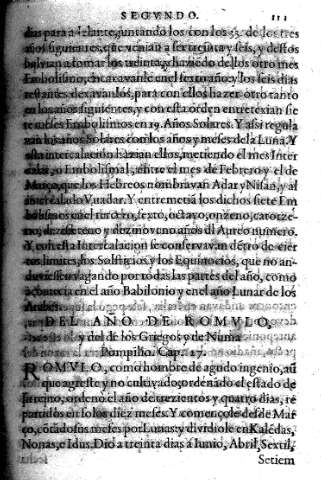 SEGVNDO. 111
dias para adelante, juntando los con los 33. de los tres
años siguientes, que venian a ser treinta y seis, y destos
bolvian a tomar los treinta, y haziē do dellos otro mes
Embolismo, encaxavanle en el sexto año, y los seis dias
restātes dexavanlos, para con ellos hazer otro tanto
en los años siguientes, y con esta orden entretexian sie
te meses Embolismos en 19. Años Solares. Y assi regula
van los años Solares con los años y meses de la Luna. Y
esta intercalacion hazian ellos, metiendo el mes Inter
calar, o Embolismal, entre el mes de Febrero y el de
Março, que los Hebreos nombravan Adar y Nisan, y al
intercalado Vuadar. Y entremetiā los dichos siete Em
bolismos en el tercero, sexto, octavo, onzeno, catorze-
no, deziseteno y dezinoveno años dl Aureo numero.
Y con esta Intercalacion se conservavan dētro de cier
tos limites, los Solsticios y los Equinocios, que no an-
duviessen vagando por todas las partes del año, como
acontecia en el año Babilonio y en el año Lunar de los
Arabes.
DEL AÑO DE ROMVLO,
y del de los Griegos y de Numa
Pompilio. Cap. 17.
ROMVLO, como hombre de agudo ingenio, aū
que agreste y no cultivado, ordenādo el estado de
su reino, ordenò el año de trezientos y quatro dias, re
partidos en solos diez meses. Y començole desde Mar
ço, cōtādo sus meses por Lunas: y dividiole en Kalēdas,
Nonas, e Idus. Dio a treinta dias à Iunio, Abril, Sextil,
Setiem